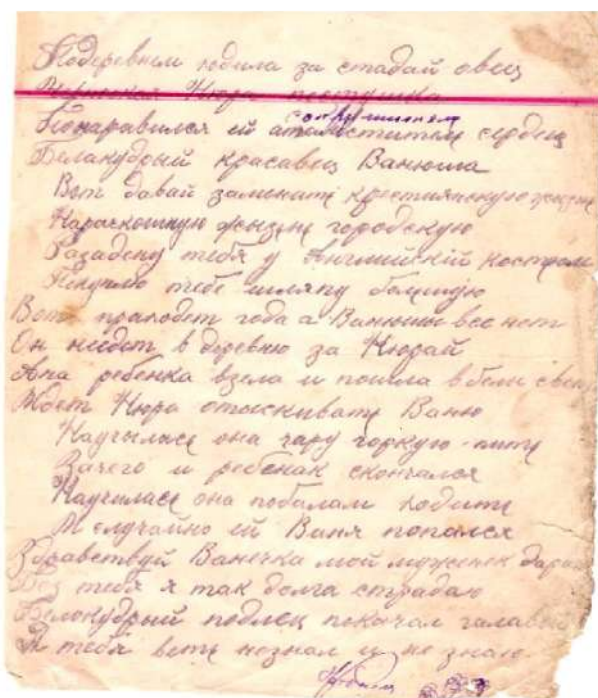 Подеревнем ходила за стадай овец
Нюра пастушка
сокрушилел
Понаравился ей атомстител сердец
Белакудрый красавец Ванюша
Вот давай заменити крестиянскую жизню
Нарачкошную жызню городскую
Разадену тебя у Английскій кострюм
Покуплю тебе шляпу большую
Вот праходет года а Ванюшы все нет
Он нейдет в деревню за Нюрай
Ана ребенка взела и пошла в бели свет
Идет Нюра отыскивати Ваню
Научылася она чару горкую пити
Зачего и ребенак скончался
Научилася она побалам ходити
И случайно ей Ваня попался
Здравствуй Ванечка мой муженек дараг
Без тебя я так долга страдаю
Белокудрый подлец покачал галавой
Я тебя веть незнал и не знаю